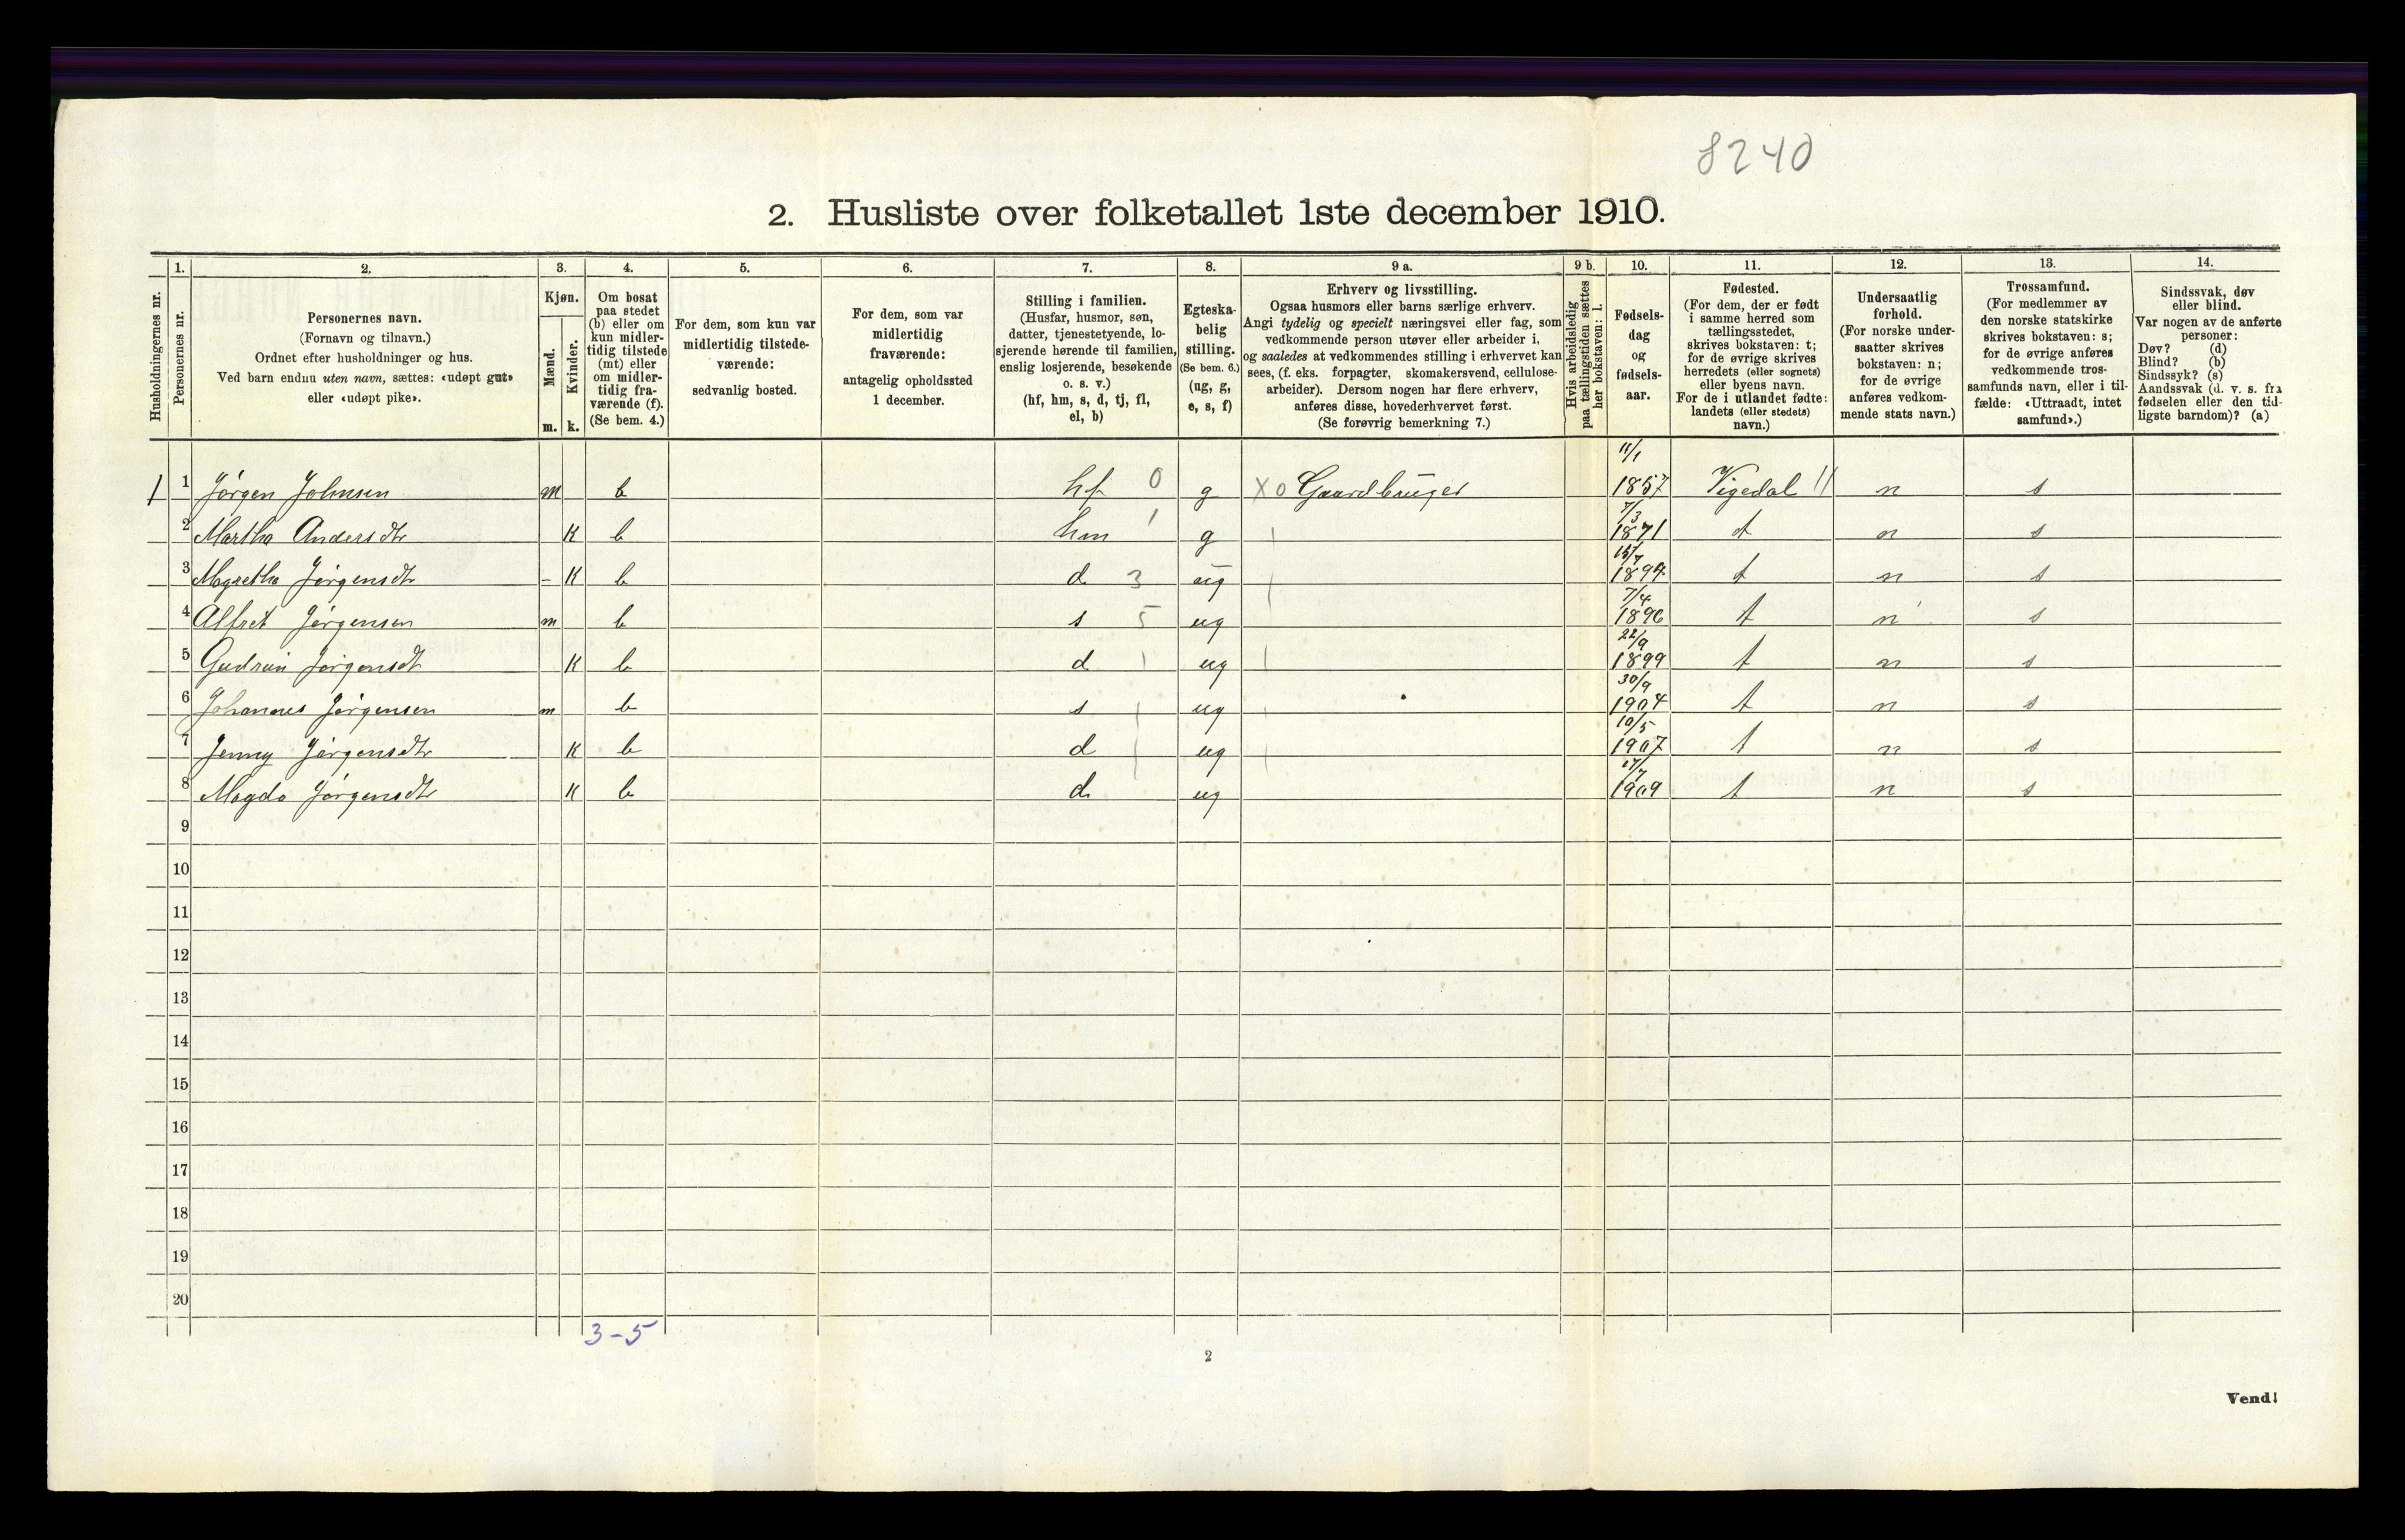 8240
2. Husliste over folketallet 1ste december 1910.
Husholdningernes nr.
1.
Personernes nr.
2.
Personernes navn.
(Fornavn og tilnavn.)
Ordnet efter husholdninger og hus.
Ved barn endnu uten navn, sættes: «udøpt gut»
eller «udøpt pike».
3.
Kjøn.
Mænd.
Kvinder.
m.
k.
4.
Om bosat
paa stedet
(b) eller om
kun midler-
tidig tilstede
(mt) eller
om midler-
tidig fra-
værende (f).
(Se bem. 4.)
5.
For dem, som kun var
midlertidig tilstede-
værende:
sedvanlig bosted.
6.
For dem, som var
midlertidig
fraværende:
antagelig opholdssted
1 december.
7.
Stilling i familien.
(Husfar, husmor, søn,
datter, tjenestetyende, lo-
sjerende hørende til familien,
enslig losjerende, besøkende
o. s. v.)
(hf, hm, s, d, tj, fl,
el, b)
8.
Egteska-
belig
stilling.
(Se bem. 6.)
(ug, g,
e, s, f)
9 a.
Erhverv og livsstilling.
Ogsaa husmors eller barns særlige erhverv.
Angi tydelig og specielt næringsvei eller fag, som
vedkommende person utøver eller arbeider i,
og saaledes at vedkommendes stilling i erhvervet kan
sees, (f. eks. forpagter, skomakersvend, cellulose-
arbeider). Dersom nogen har flere erhverv,
anføres disse, hovederhvervet først.
(Se forøvrig bemerkning 7.)
9 b.
Hvis arbeidsledig
paa tællingstiden sættes
her bokstaven: l.
10.
Fødsels-
dag
og
fødsels-
aar.
11.
Fødested.
(For dem, der er født
i samme herred som
tællingsstedet,
skrives bokstaven: t;
for de øvrige skrives
herredets (eller sognets)
eller byens navn.
For de i utlandet fødte:
landets (eller stedets)
navn.)
12.
Undersaatlig
forhold.
(For norske under-
saatter skrives
bokstaven: n;
for de øvrige
anføres vedkom-
mende stats navn.)
13.
Trossamfund.
(For medlemmer av
den norske statskirke
skrives bokstaven: s;
for de øvrige anføres
vedkommende tros-
samfunds navn, eller i til-
fælde: «Uttraadt, intet
samfund».)
14.
Sindssvak, døv
eller blind.
Var nogen av de anførte
personer:
Døv? (d)
Blind? (b)
Sindssyk? (s)
Aandssvak (d. v. s. fra
fødselen eller den tid-
ligste barndom)? (a)
1 1 Jørgen Johnsen m b hf 0 g X0 Gaardbruger 11/1 1857 Vigedal n s
2 Martha Andersdtr K b hm 1 g 7/3 1871 t n s
3 Magretha Jørgensdtr - K b d 3 ug 1894 t n s
4 Alfret Jørgensen m b s 5 ug 7/4 1896 t n s
5 Gudrun Jørgensdt K b d ug 22/9 1899 t n s
6 Johannes Jørgensen m b s ug 30/9 1904 t n s
7 Jenny Jørgensdtr K b d ug 10/5 1907 t n s
8 Magda Jørgensdtr K b d ug 1909 t n s
9
10
11
12
13
14
15
16
17
18
19
20
3-5
2
Vend!